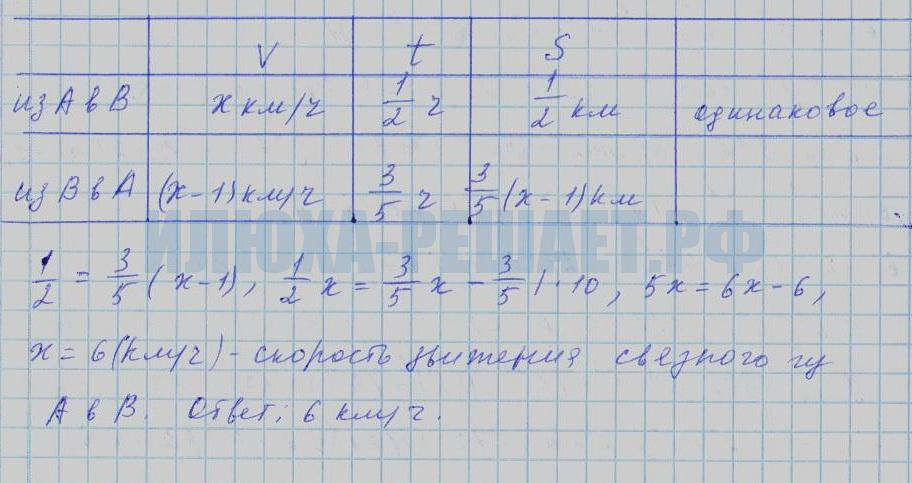 V t S
из А в В х км/ч 1/2 ч 1/2 км одинаковое
из В в А (х-1)км/ч 3/5 ч 3/5 (х-1) км
ИЛЮХА-РЕШАЕТ.РФ
1/2 = 3/5 (х-1), 1/2 х = 3/5 х - 3/5 | · 10, 5х = 6х - 6,
х = 6 (км/ч) - скорость движения связного из
А в В. Ответ: 6 км/ч.